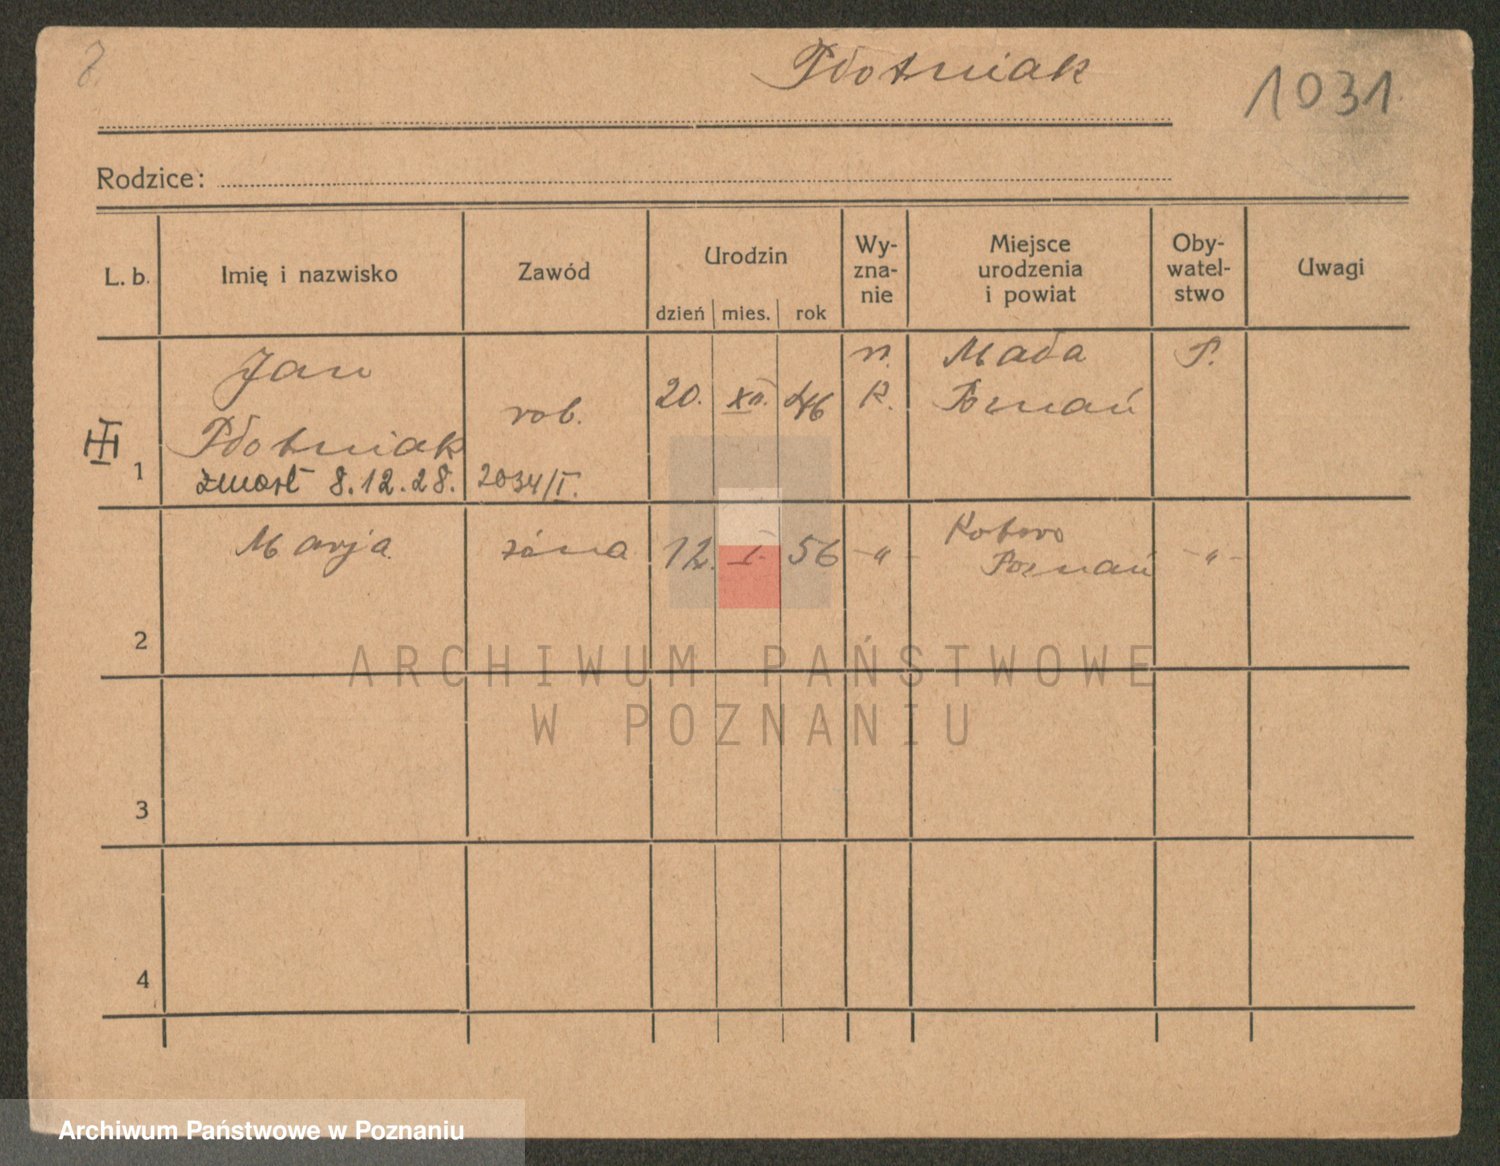 Płotniak
1031.
Rodzice:
L. b.
Imię i nazwisko
Zawód
Urodzin
dzień
mies.
rok
Wy-
zna-
nie
Miejsce
urodzenia
i powiat
Oby-
watel-
stwo
Uwagi
1
Jan
Płotniak
zmarł 8.12.28.
rob.
2034/I.
20.
XII.
46
r.
K.
Poznań
P.
2
Marja
żona
12.
I.
56
-"-
Poznań
-"-
3
4
ARCHIWUM PAŃSTWOWE
W POZNANIU
Archiwum Państwowe w Poznaniu